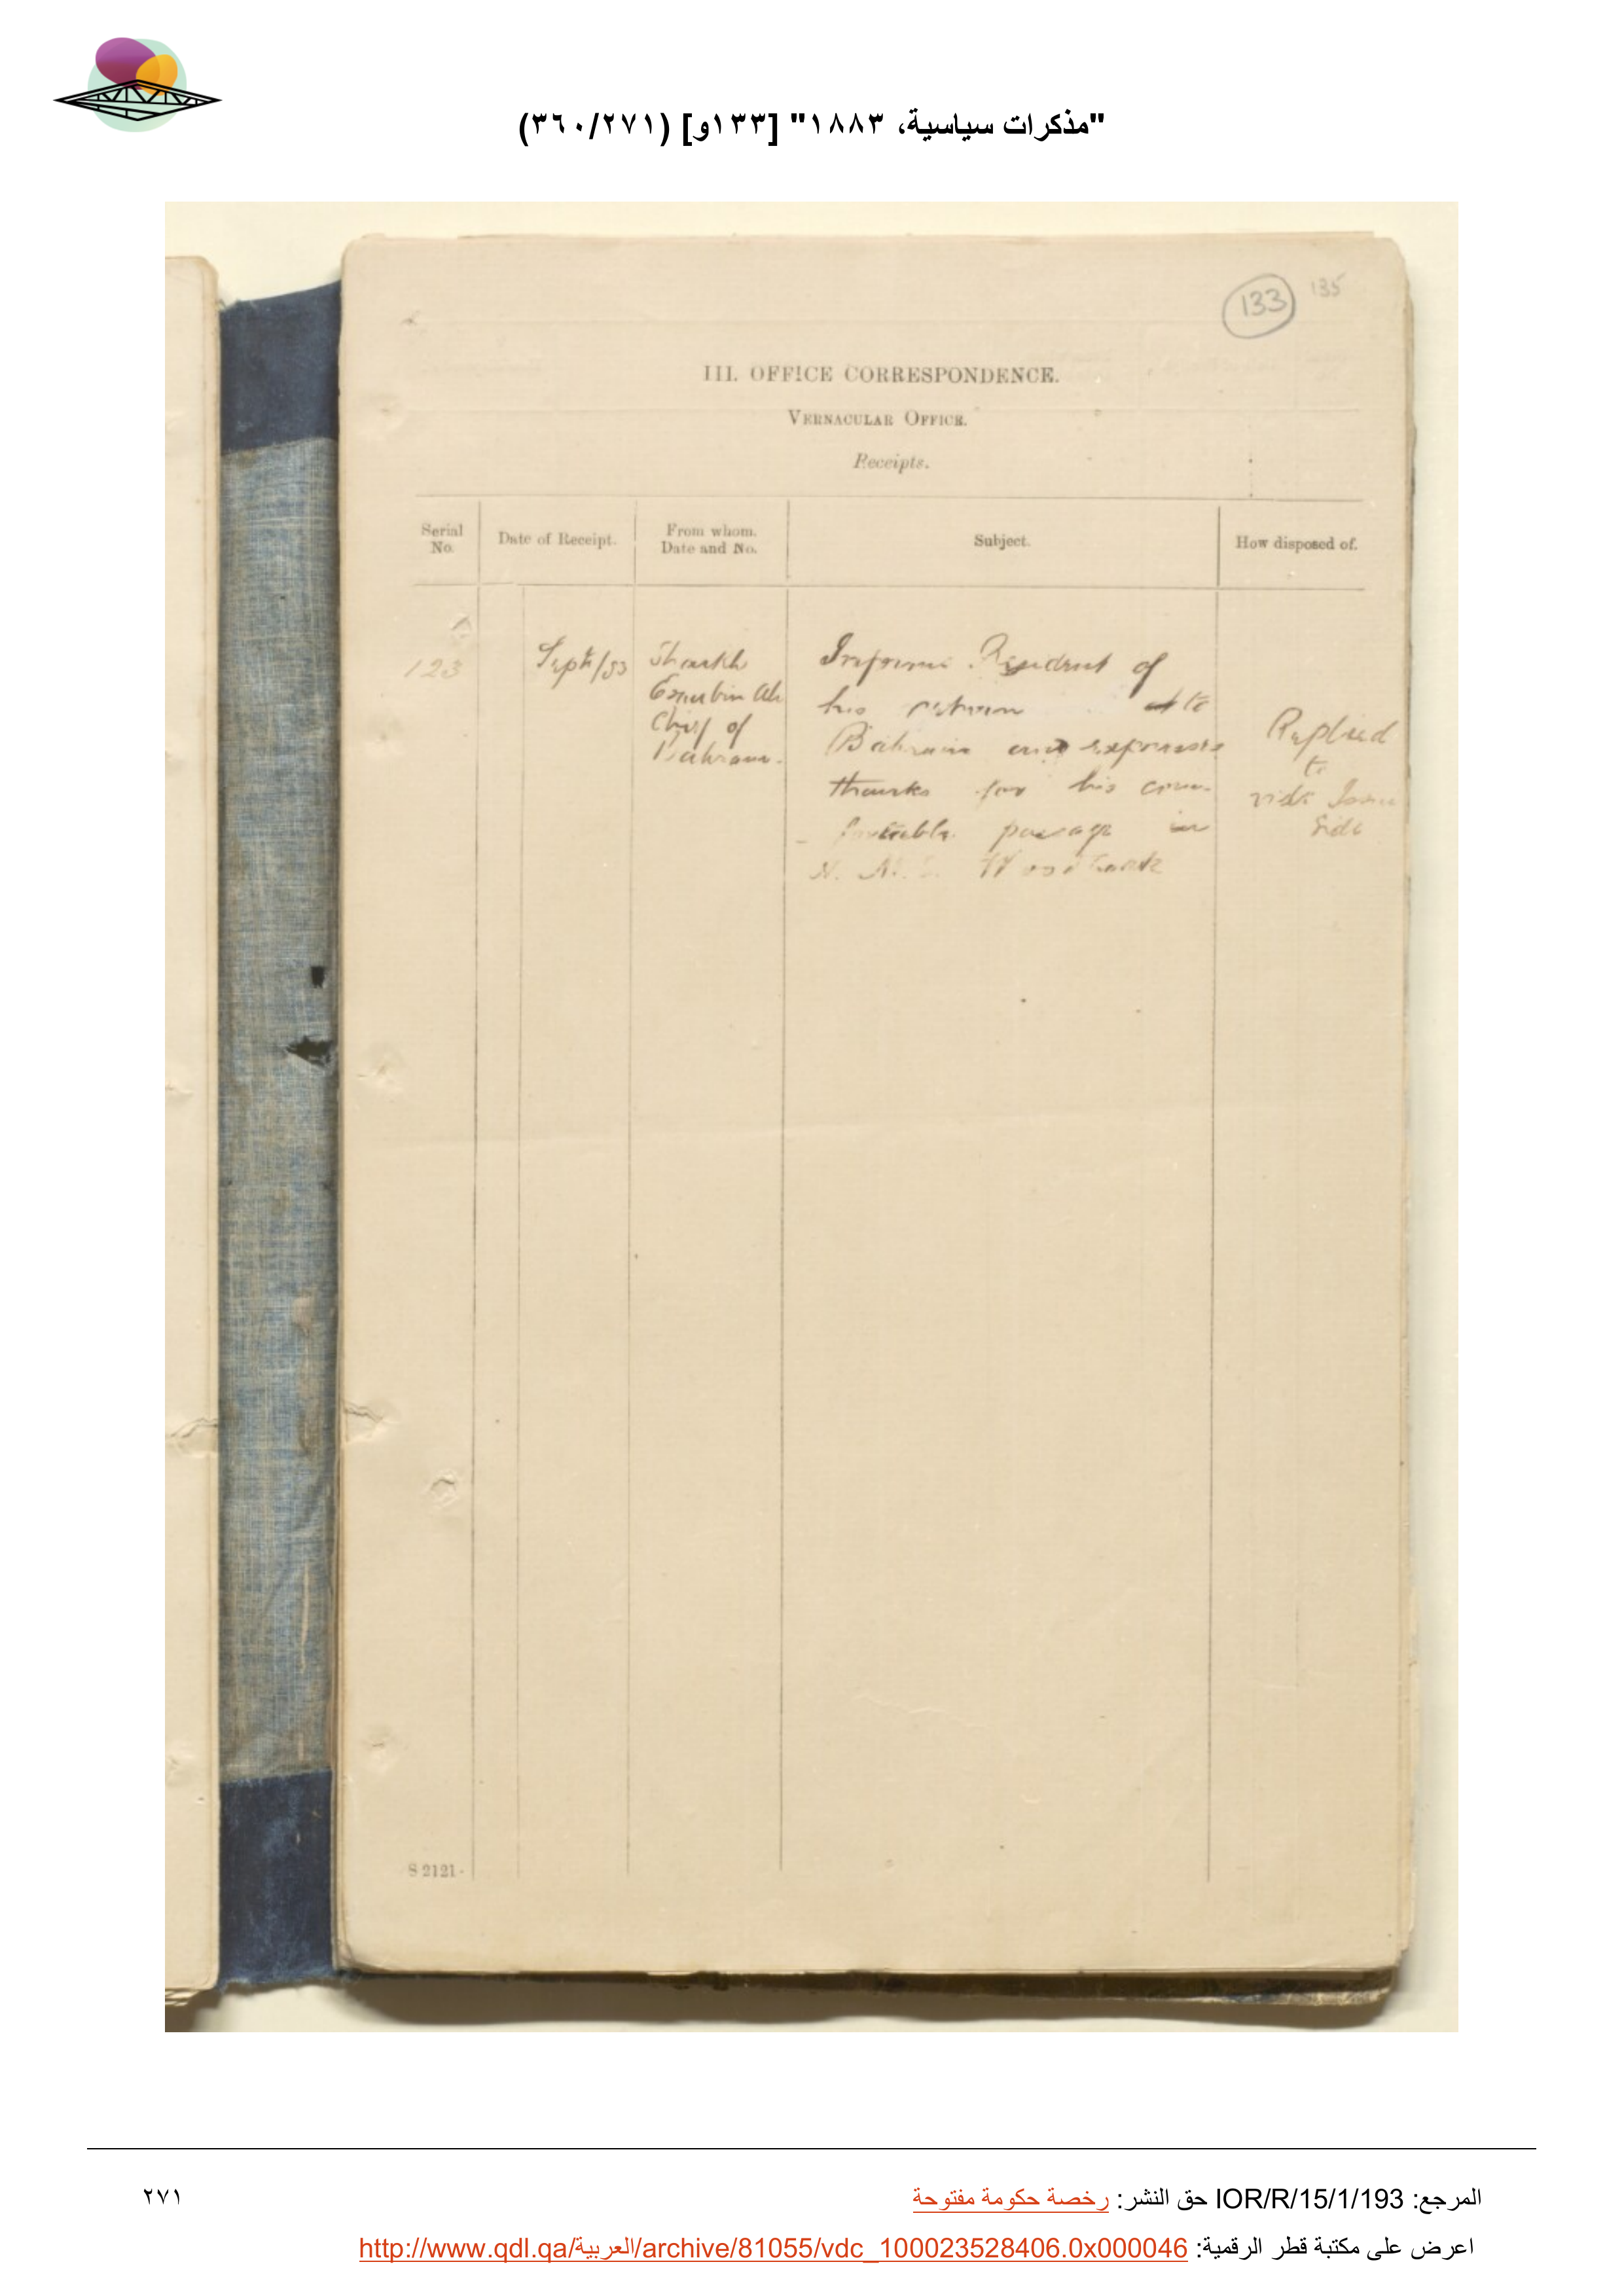 "مذكرات سياسية، ١٨٨٣" [١٣٣و] (٣٦٠/٢٧١)
133 135
III. OFFICE CORRESPONDENCE.
VERNACULAR OFFICE.
Receipts.
Serial No.
Date of Receipt.
From whom. Date and No.
Subject.
How disposed of.
123
Sept/83
Shaikh
Esau bin Ali
Chief of
Bahrain.
Informs Resident of
his return to
Bahrain and expresses
thanks for his com-
- fortable passage in
H. M. S. Woodlark
Replied
to
vide Issue
Side
S 2121
المرجع: IOR/R/15/1/193 حق النشر: رخصة حكومة مفتوحة
٢٧١
اعرض على مكتبة قطر الرقمية: http://www.qdl.qa/العربية/archive/81055/vdc_100023528406.0x000046